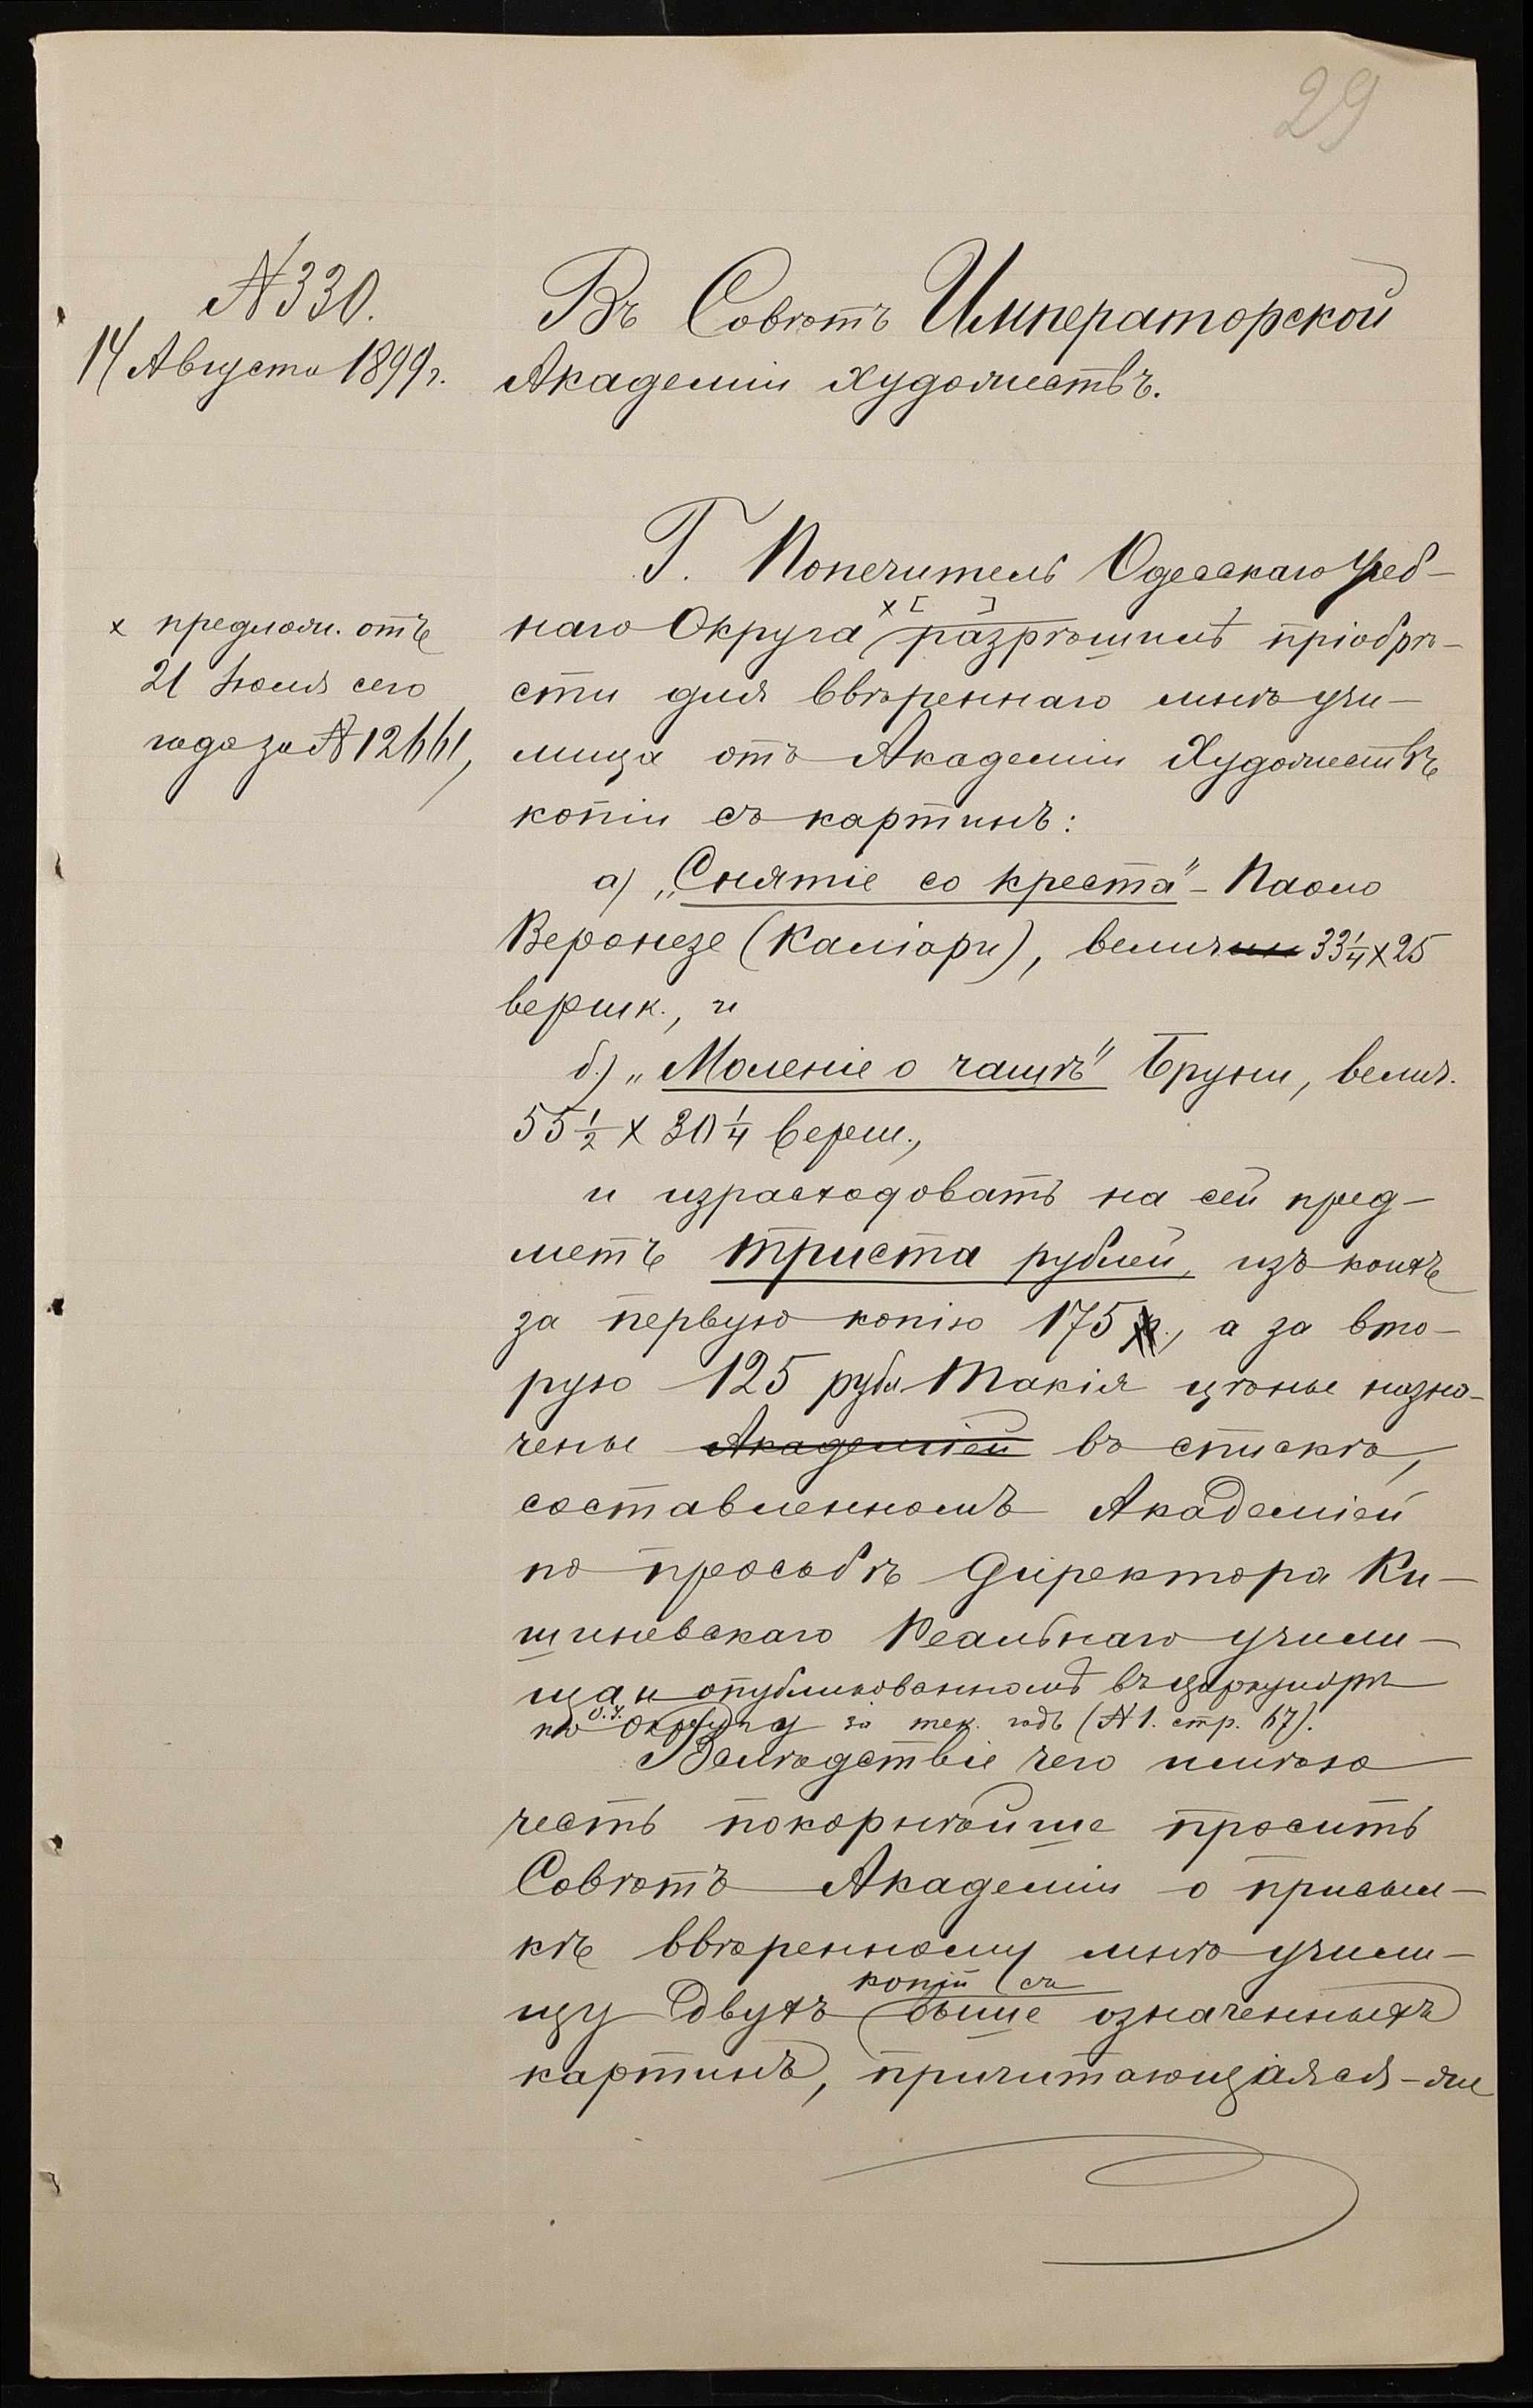 29
№ 330.
14 Августа 1899 г.
Въ Совѣтъ Императорской
Академіи Художествъ.
Г. Попечитель Одесскаго Учеб-
наго Округа × [ ] разрѣшилъ пріобрѣ-
× предлож. отъ
21 Іюля сего
года за № 12661,
сти для ввѣреннаго мнѣ учи-
лища отъ Академіи Художествъ
копіи съ картинъ:
а) „Снятіе со креста" - Паоло
Веронезе (Каліари), велич 33 1/4 × 25
вершк., и
б.) „Моленіе о чашѣ" Бруни, велич.
55 1/2 × 30 1/4 верш.,
и израсходовать на сей пред-
метъ триста рублей, изъ коихъ
за первую копію 175 р., а за вто-
рую 125 руб. Такія цѣны назна-
чены Академіей въ спискѣ,
составленномъ Академіей
по просьбѣ Директора Ки-
шиневскаго Реальнаго учили-
ща и опубликованномъ въ циркулярѣ
по О. У. Округу за тек. годъ (№ 1. стр. 67).
Вслѣдствіе чего имѣю
честь покорнѣйше просить
Совѣтъ Академіи о присыл-
кѣ ввѣренному мнѣ учили-
копій съ
щу двухъ выше означенныхъ
картинъ, причитающіяся-же